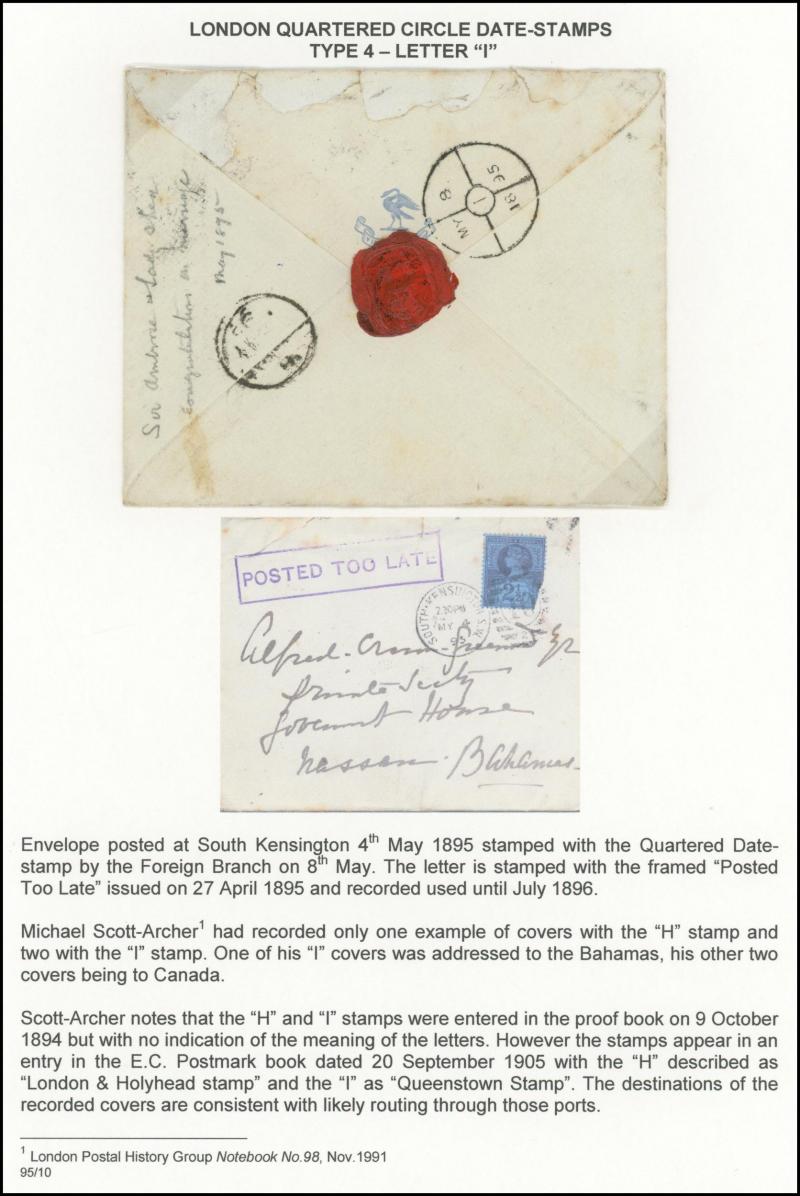 LONDON QUARTERED CIRCLE DATE-STAMPS
TYPE 4 – LETTER “I”
Sir Ambrose & Lady Shea
Congratulations on marriage
May 1895
18 95
I
MY 8
95
H
POSTED TOO LATE
SOUTH-KENSINGTON S.W.
2.30PM
MY 4
95
2½
Alfred
Private Secty
Goverment House
Nassau. Bahamas.
Envelope posted at South Kensington 4th May 1895 stamped with the Quartered Date-
stamp by the Foreign Branch on 8th May. The letter is stamped with the framed “Posted
Too Late” issued on 27 April 1895 and recorded used until July 1896.
Michael Scott-Archer1 had recorded only one example of covers with the “H” stamp and
two with the “I” stamp. One of his “I” covers was addressed to the Bahamas, his other two
covers being to Canada.
Scott-Archer notes that the “H” and “I” stamps were entered in the proof book on 9 October
1894 but with no indication of the meaning of the letters. However the stamps appear in an
entry in the E.C. Postmark book dated 20 September 1905 with the “H” described as
“London & Holyhead stamp” and the “I” as “Queenstown Stamp”. The destinations of the
recorded covers are consistent with likely routing through those ports.
1 London Postal History Group Notebook No.98, Nov.1991
95/10